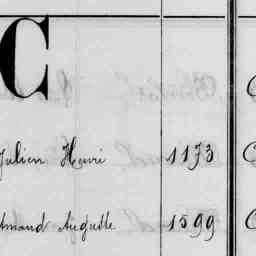 C
Julien Henri 1173
Armand Auguste 1599